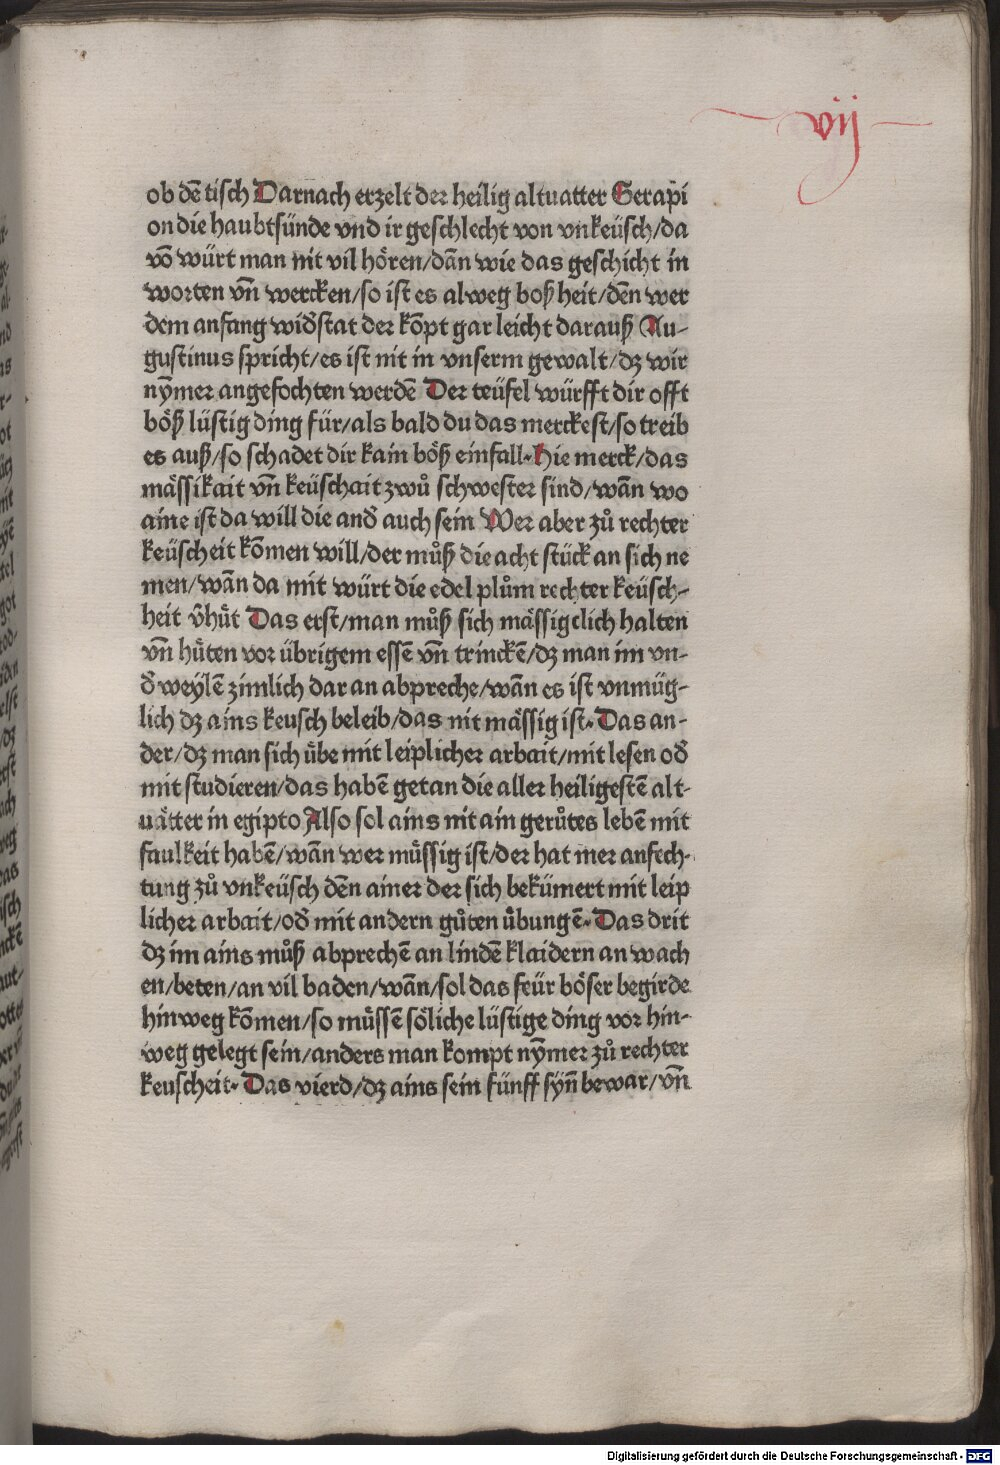 vij
ob dē tisch Darnach erzelt der heilig altuatter Serapi
on die haubtsünde vnd ir geschlecht von vnkeüsch/da
vō würt man nit vil hören/dān wie das geschicht in
worten vn̄ wercken/so ist es alweg boßheit/dēn wer
dem anfang wid̄stat der kōpt gar leicht darauß Au-
gustinus spricht/es ist nit in vnserm gewalt/dz wir
nȳmer angefochten werdē Der teüfel würfft dir offt
böß lüstig ding für/als bald du das merckest/so treib
es auß/so schadet dir kain böß einfall. Hie merck/das
mässikait vn̄ keüschait zwů schwester sind/wān wo
aine ist da will die and̄ auch sein Wer aber zů rechter
keüscheit kōmen will/der můß die acht stück an sich ne
men/wān da mit würt die edel plům rechter keüsch-
heit v̄hüt Das erst/man můß sich mässigclich halten
vn̄ hüten vor übrigem essē vn̄ trinckē/dz man im vn-
d̄weylē zimlich dar an abpreche/wān es ist vnmüg-
lich dz ains keusch beleib/das nit mässig ist. Das an-
der/dz man sich übe mit leiplicher arbait/mit lesen od̄
mit studieren/das habē getan die aller heiligestē alt-
uätter in egipto Also sol ains nit ain gerůtes lebē mit
faulkeit habē/wān wer müssig ist/der hat mer anfech-
tung zů vnkeüsch dēn ainer der sich bekümert mit leip
licher arbait/od̄ mit andern gůten übungē. Das drit
dz im ains můß abprechē an lindē klaidern an wach
en/beten/an vil baden/wān/sol das feür böser begirde
hinweg kōmen/so müssē söliche lüstige ding vor hin-
weg gelegt sein/anders man kompt nȳmer zů rechter
keuscheit. Das vierd/dz ains sein fünff syn̄ bewar/vn̄
Digitalisierung gefördert durch die Deutsche Forschungsgemeinschaft - DFG